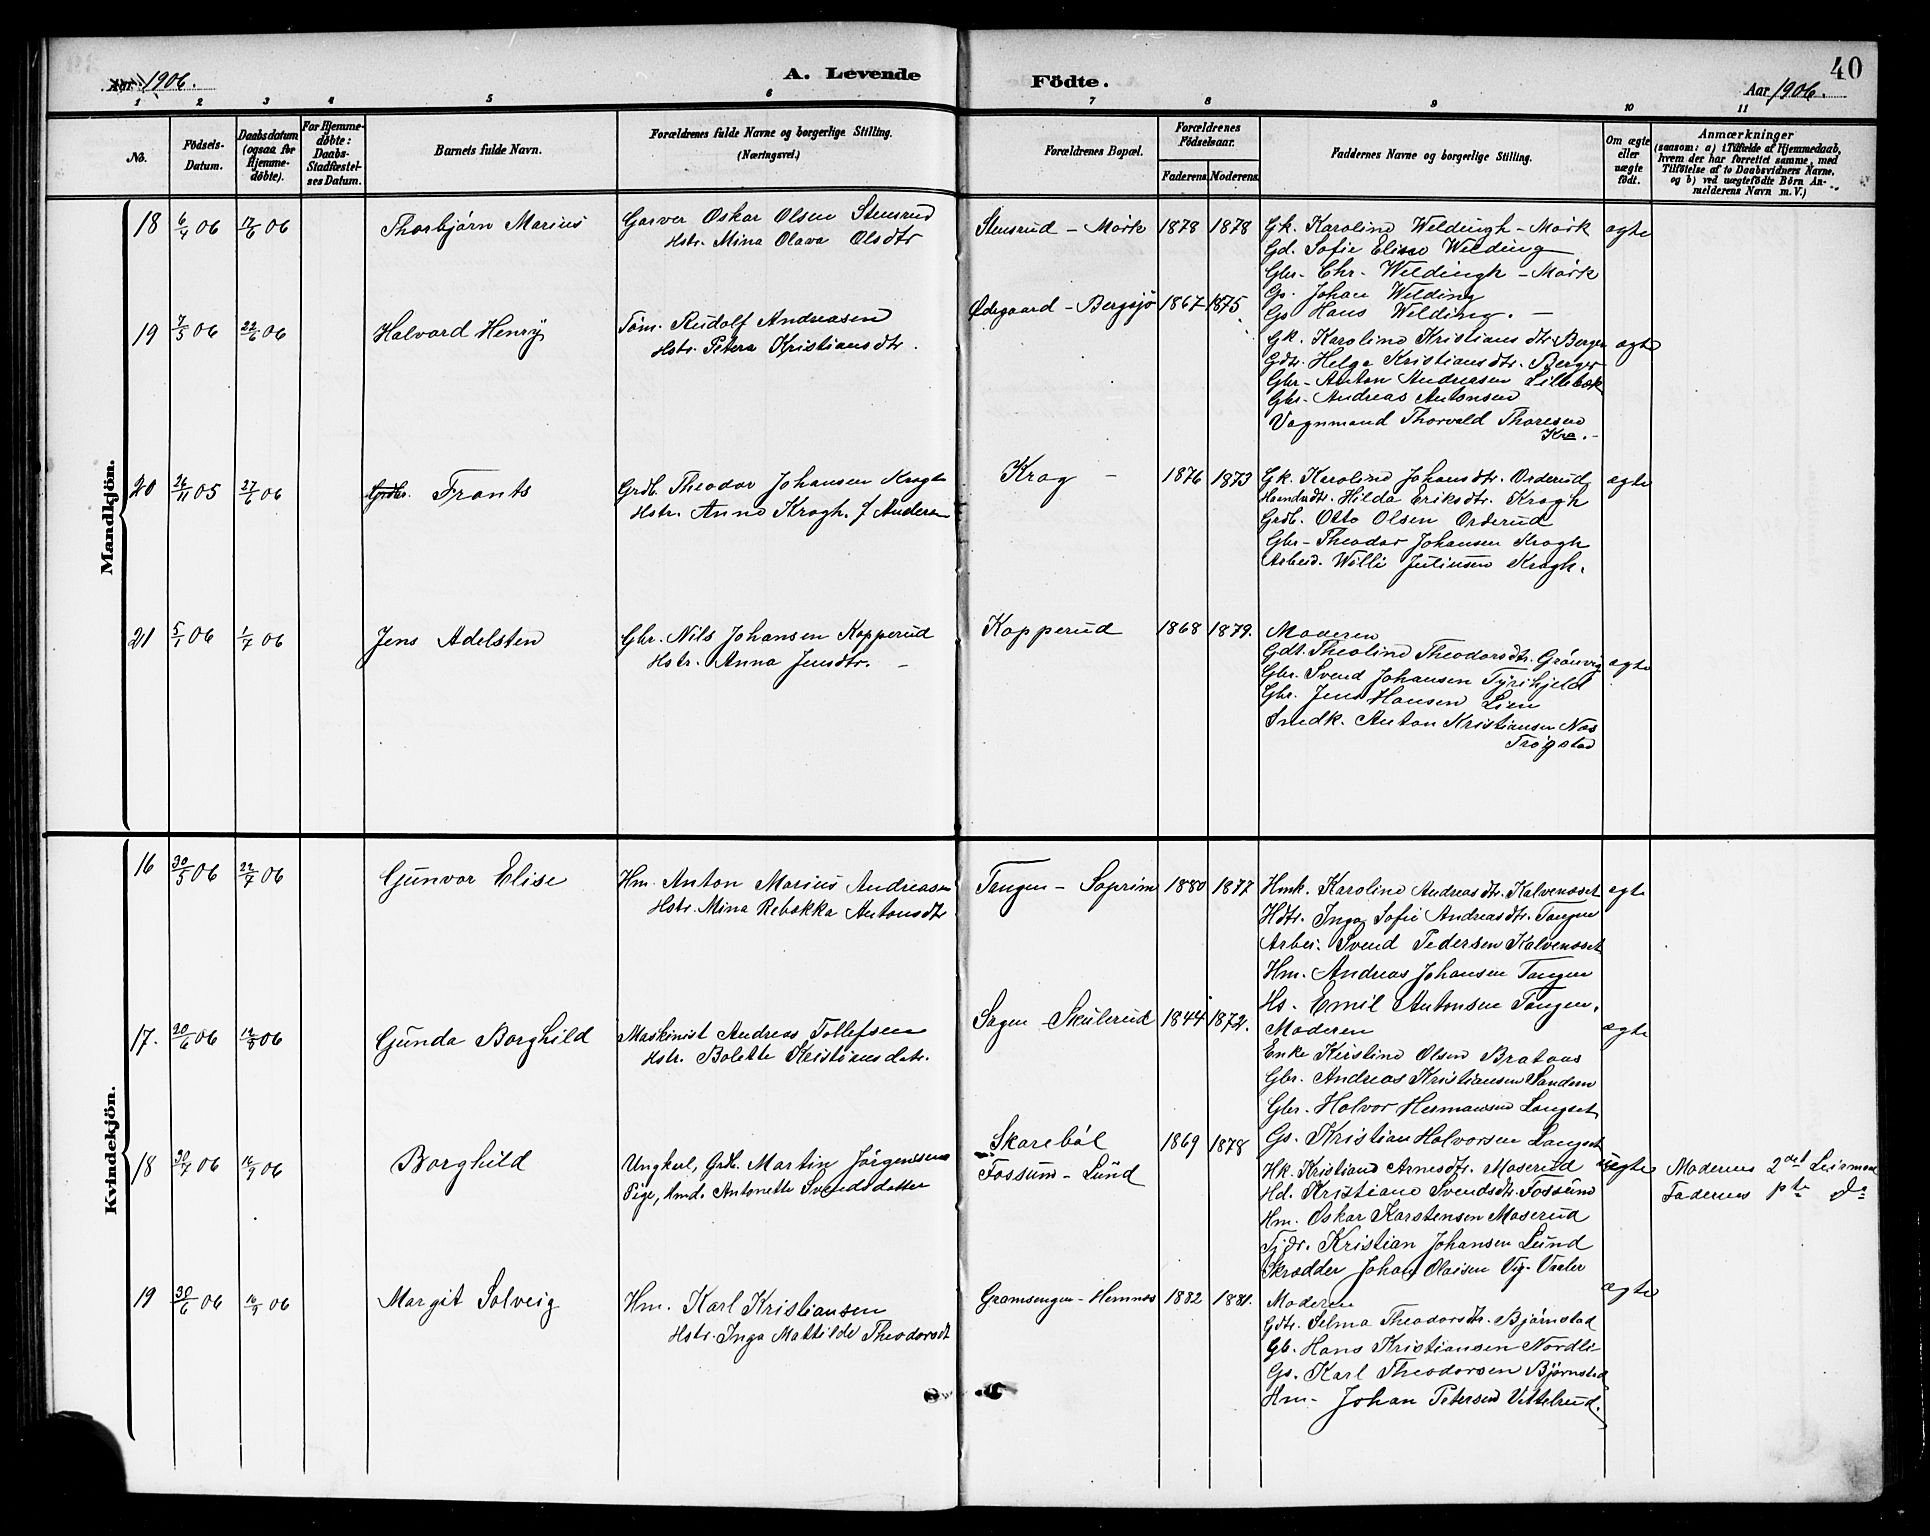 Aar 1906.
A. Levende
Födte.
40
Aar 1906.
1 2 3 4 5 6 7 8 9 10 11
No.
Födsels-Datum.
Daabsdatum (ogsaa for Hjemme-döbte).
For Hjemme-döbte: Daabs-Stadfæstel-ses Datum.
Barnets fulde Navn.
Forældrenes fulde Navne og borgerlige Stilling.
(Næringsvei.)
Forældrenes Bopæl.
Forældrenes Födselsaar.
Faderens. Moderens.
Faddernes Navne og borgerlige Stilling.
Om ægte eller uægte födt.
Anmærkninger
(saasom: a) i Tilfælde af Hjemmedaab,
hvem der har forrettet samme, med
Tilföielse af to Daabsvidners Navne,
og b) ved uægtefödte Börn An-
melderens Navn m. V.)
Mandkjön.
18 6/4 06 17/6 06 Thorbjørn Marius
Garver Oskar Olsen Stensrud
Hstr. Mina Olava Olsdtr
Stensrud - Mørk 1878 1878
Gk. Karoline Weldingh - Mørk
Gd. Sofie Elise Welding
Gbr. Chr. Weldingh - Mørk
Gs. Johan Welding
Gs Hans Welding. -
ægte
19 7/5 06 22/6 06 Halvard Henry
Tøm. Rudolf Andreasen
Hstr. Petera Kristiansdtr.
Ødegaard - Bergsjø 1867 1875
Gk. Karoline Kristiansdtr. Berger
Gdtr. Helga Kristiansdtr. Berger
Gbr. Anton Andreasen Lillebæk
Gbr. Andreas Antonsen
Vognmand Thorvald Thoresen
Kra. -
ægte
20 26/11 05 27/6 06 Frants
Grdb. Theodor Johansen Krogh
Hstr. Anna Krogh. f Andersen
Krog - 1876 1873
Gk. Karoline Johansdtr. Orderud
Hilda Eriksdtr. Krogh
Grdb. Otto Olsen Orderud
Gbr - Theodor Johansen Krogh
Arbeid. Willi Juliusen Krogh.
ægte
21 5/1 06 1/7 06 Jens Adelsten
Gbr. Nils Johansen Kopperud
Hstr. Anna Jensdtr. -
Kopperud 1868 1879.
Moderen
Gdt. Theoline Theodorsdtr. Grønvig
Gbr. Svend Johansen Tyrihjeld
Gbr. Jens Hansen Lien
Smedk. Anton Kristiansen Nas
Trøgstad
ægte
Kvindekjön.
16 30/5 06 22/7 06 Gunvor Elise
Hm. Anton Marius Andreasen
Hstr. Mina Rebekka Antonsdtr
Tangen - Soprim 1880 1877
Hmk. Karoline Andreasdtr. Kalvenæset
Hdtr. Inga Sofie Andreasdtr. Tangen
Arbei. Svend Pedersen Kalvenæset
Hm. Andreas Johansen Tangen
Hs. Emil Antonsen Tangen.
ægte
17. 20/6 06 12/8 06 Gunda Borghild
Maskinist Andreas Tollefsen
Hstr. Bolette Kristiansdatr.
Sagen Skulerud 1844 1872.
Moderen
Enke Kristine Olsen Brataas
Gbr. Andreas Kristiansen Sandem
Gbr. Halvor Hermansen Langset
Gs. Kristian Halvorsen Langset
ægte
18 30/7 06 16/9 06 Borghild
Ungkarl, Grdb. Martin Jørgensen
Pige, Hmd. Antonette Svendsdatter
Skarebøl
Fossum - Lund
1869 1878
Hk. Kristiane Arnesdtr. Moserud
Hd. Kristiane Svendsdtr. Fossum
Hm. Oskar Karstensen Moserud
Tjdr. Kristian Johansen Lund
Skrædder Johan Olaisen Vig - Vaaler
uægte
Moderens 2det Leiermaal
Faderens 1ste do
19 30/6 06 16/9 06 Margit Solveig
Hm. Karl Kristiansen
Hstr. Inga Mathilde Theodorsdt
Gramsengen - Hemnæs 1882 1881.
Moderen
Gdtr. Selma Theodorsdtr. Bjørnstad
Gb. Hans Kristiansen Nordli
Gs. Karl Theodorsen Bjørnstad
Hm - Johan Petersen Vittelrud.
ægte